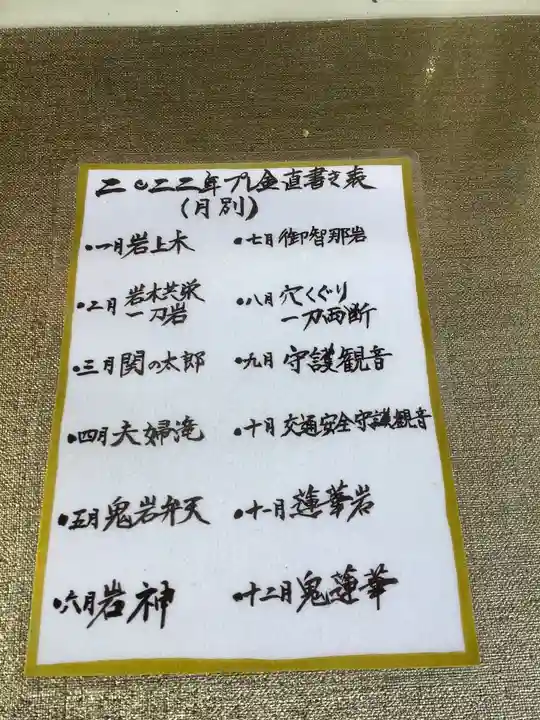 二〇二二年プレ金直書き表
(月別)
・一月岩上木
・二月岩木共栄
一刀岩
・三月関の太郎
・四月夫婦滝
・五月鬼岩弁天
・六月岩神
・七月御智那岩
・八月穴くぐり
一刀両断
・九月守護観音
・十月交通安全守護観音
・十一月蓮華岩
・十二月鬼蓮華